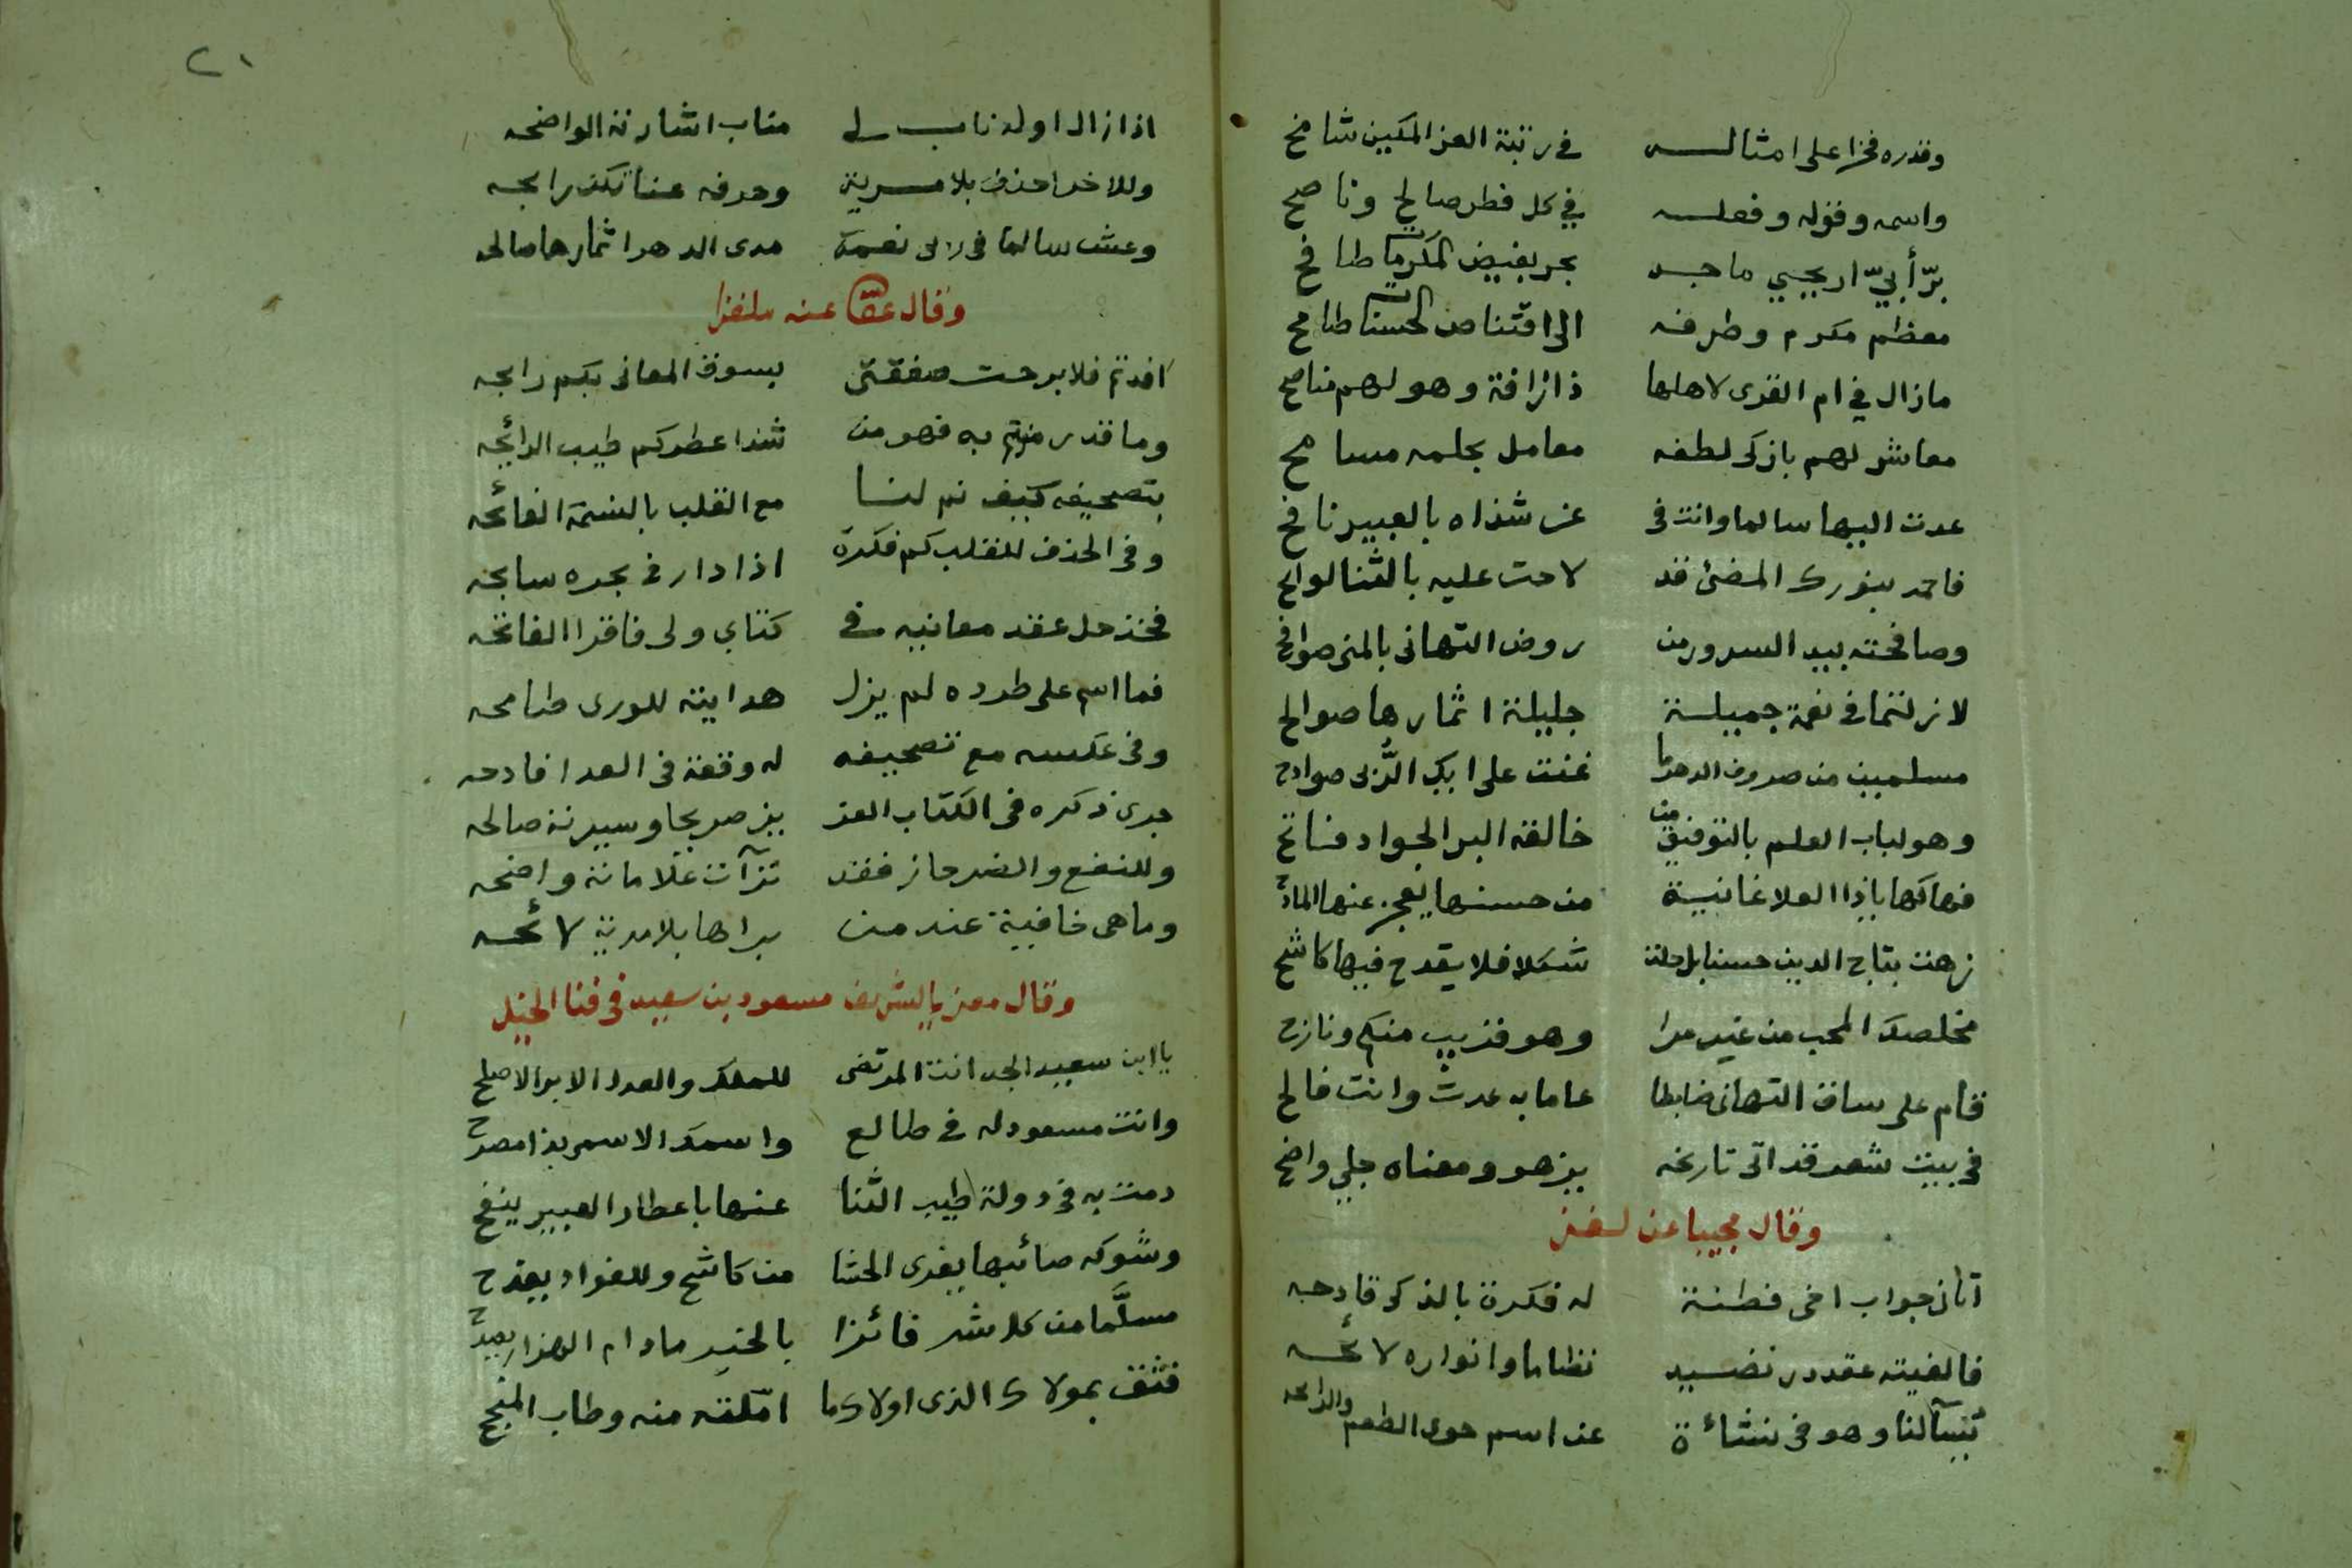 وقدره فخرا على امثاله في رتبة العز المكين شامخ
واسمه وقوله وفعله في كل قطر صالح وناصح
برّ أبيّ اريحيي ماجد بحر بفيض المكرمات طافح
معظم مكرم وطرفه الى اقتناص الحسنات طامح
مازال في ام القرى لاهلها ذا رافة وهو لهم مناصح
معاشر لهم بازكى لطفه معامل بحلمه مسامح
عدت اليها سالما وانت في عن شذاه بالعبير نافح
فاحمد بنورك المضئ قد لاحت عليه بالثنا لوائح
وصافحته بيد السرور من روض التهانى بالمنى صوافح
لا زلتما في نعمة جميلة جليلة اثمارها صوالح
مسلمين من صروف الدهر ما غنت على ايك الرُّبى صوادح
وهو لباب العلم بالتوفيق من خالقه البر الجواد فاتح
فهاكها ياذا العلا غانية من حسنها يعجز عنها المادح
زهت بتاج الدين حسنا بل حلت شكلا فلا يقدح فيها كاشح
مخلصك المحب من غير مرا وهو قريب منكم ونازح
قام على ساق التهانى ضابطا عاما به عدت وانت فالح
في بيت شعر قد اتى تاريخه يزهو ومعناه جلي واضح
وقال مجيبا عن لغز
آتانى جواب اخى فطنة له فكرة بالذكى قادحه
فالفيته عقد در نضيد نظاما وانواره لائحه
تسآلنا وهو في نشاءة عن اسم حوى الطعم والرائحه
٢١
اذا زال اوله ناب لى مناب اشارته الواضحه
وللاخر احذف بلا مرية وحرفه عنا تكن رابحه
وعش سالما في ربى نعمة مدى الدهر اثمارها صالحه
وقال عفا عنه ملغزا
افدتم فلا برحت صفقتى بسوق المعانى بكم رابحه
وما قدر منتم به فهو من شذا عطركم طيب الرائحه
بتصحيفه كيف نم لنا مع القلب بالنسمة الفائحه
وفي الحذف للقلب كم فكرة اذا دار في بحره سابحه
فخذ حل عقد معانيه في كتابي ولى فاقرا الفاتحه
فما اسم على طرده لم يزل هدايته للورى طامحه
وفي عكسه مع تصحيفه له وقفة في العدا فادحه
جرى ذكره في الكتاب العز يز صريحا وسيرته صالحه
وللنفع والضر حاز فقد ترآت علاماته واضحه
وما هي خافية عند من يراها بلا مرية لائحه
وقال معزيا بالشريف مسعود بن سعيد في فنا الخيل
يا ابن سعيد الجد انت المرتضى للملك والعدل الابر الاصلح
وانت مسعود له في طالع واسمك الاسمى بذا مصرح
دمت به في دولة طيب الثنا عنها باعطار العبير ينفح
وشوكه صائبها يفرى الحشا من كاشح وللفواد يقدح
مسلَّما من كل شر فائزا بالخير مادام الهزار يصدح
فثق بمولاك الذى اولاك ما امّلته منه وطاب المنجح